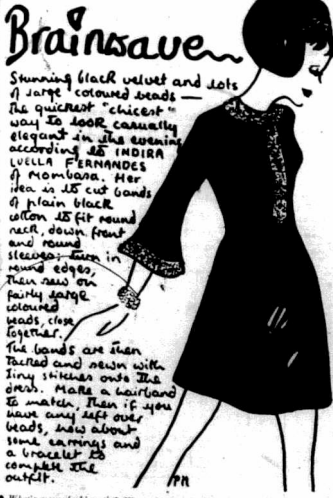 Brainwave
Stunning black velvet and lots
of large coloured beads —
the quickest "chicest"
way to look casually
elegant in the evening
according to INDIRA
LUELLA FERNANDES
of Mombasa. Her
idea is to cut bands
of plain black
cotton to fit round
neck, down front
and round
sleeves; turn in
round edges,
then sew on
fairly large
coloured
beads, close
together.
The bands are then
tacked and sewn with
tiny stitches onto the
dress. Make a hairband
to match, then if you
have any left over
beads, how about
some earrings and
a bracelet to
complete the
outfit.